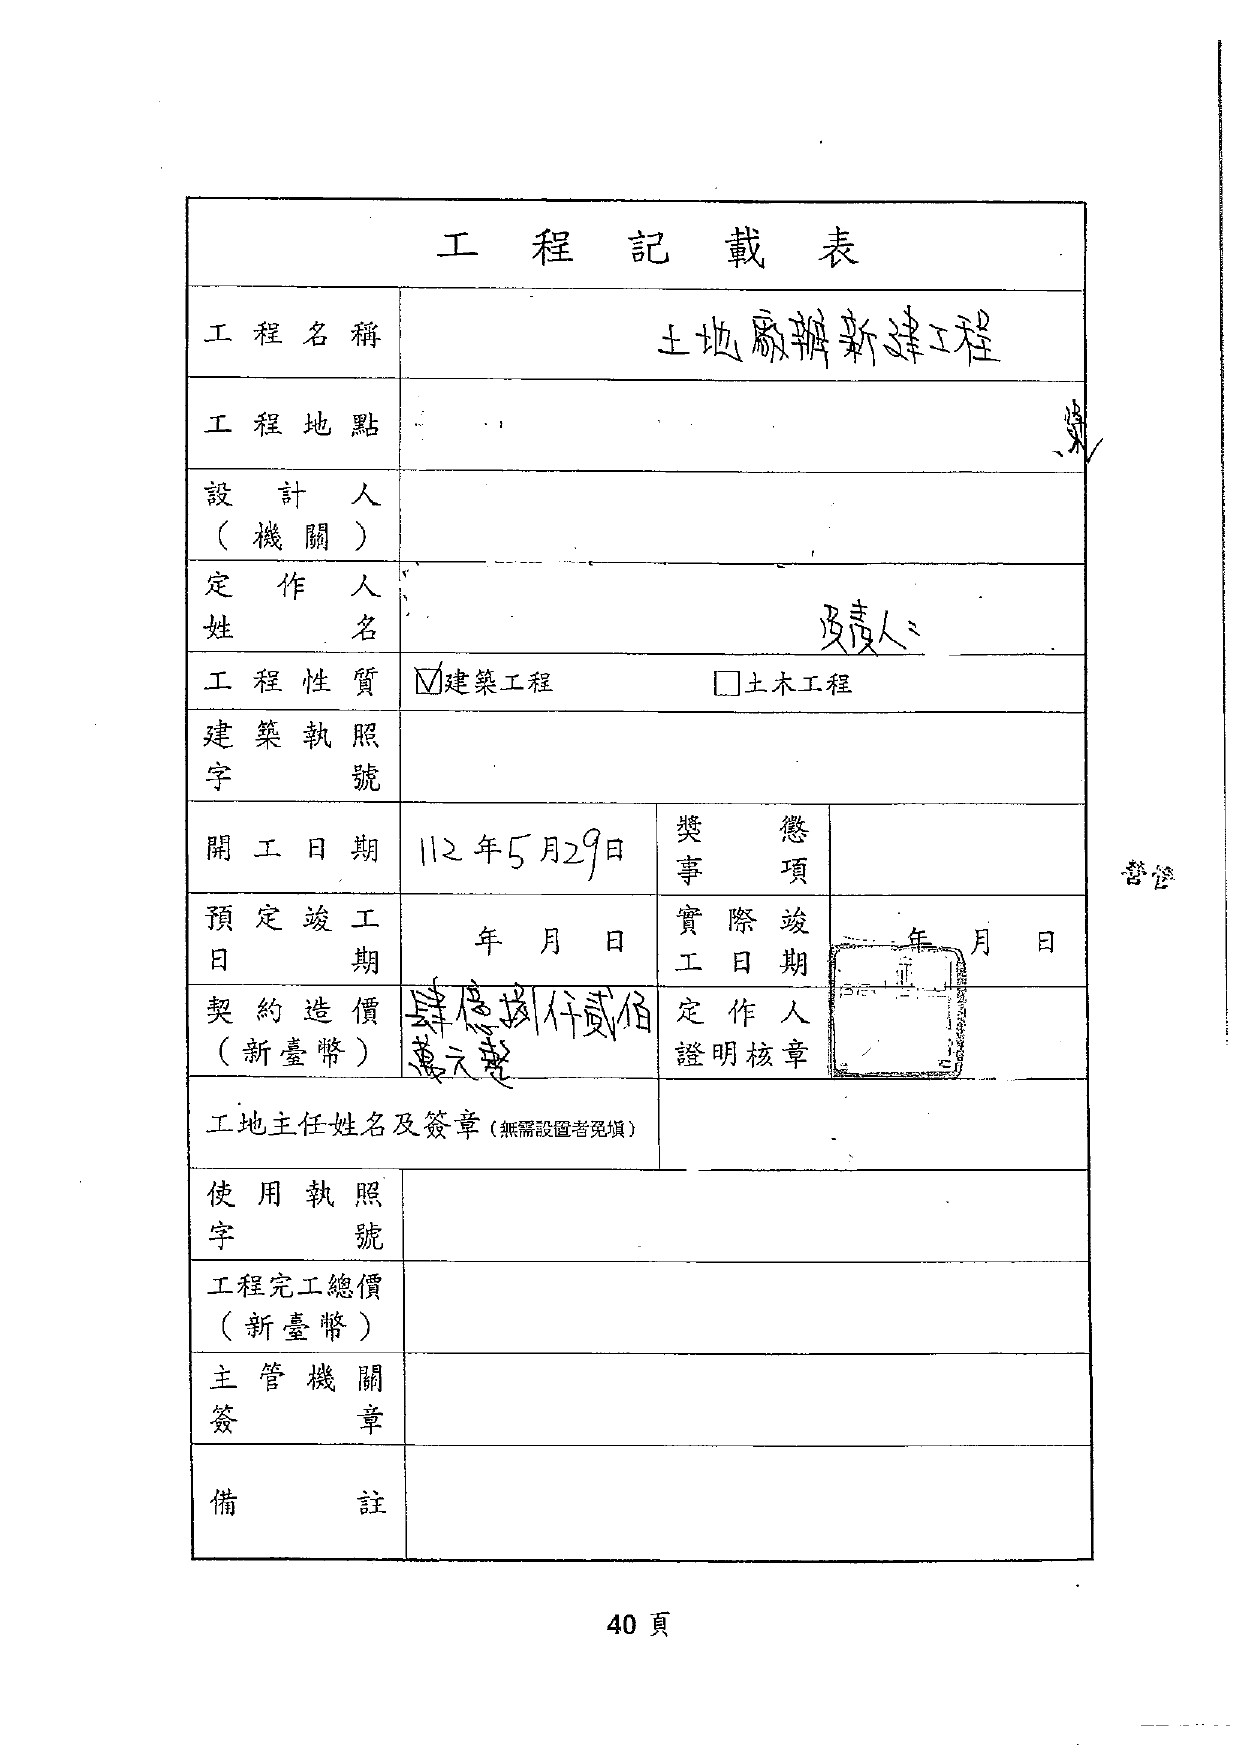 工程記載表
工程名稱 土地廠辦新建工程
工程地點
設計人
(機關)
定作人
姓名 及責人:
工程性質 ☑建築工程 □土木工程
建築執照
字號
開工日期 112年5月29日 獎懲
事項
預定竣工
日期 年 月 日 實際竣
工日期 年 月 日
契約造價
(新臺幣) 肆億捌仟貳佰
萬元整 定作人
證明核章
工地主任姓名及簽章(無需設置者免填)
使用執照
字號
工程完工總價
(新臺幣)
主管機關
簽章
備註
40 頁